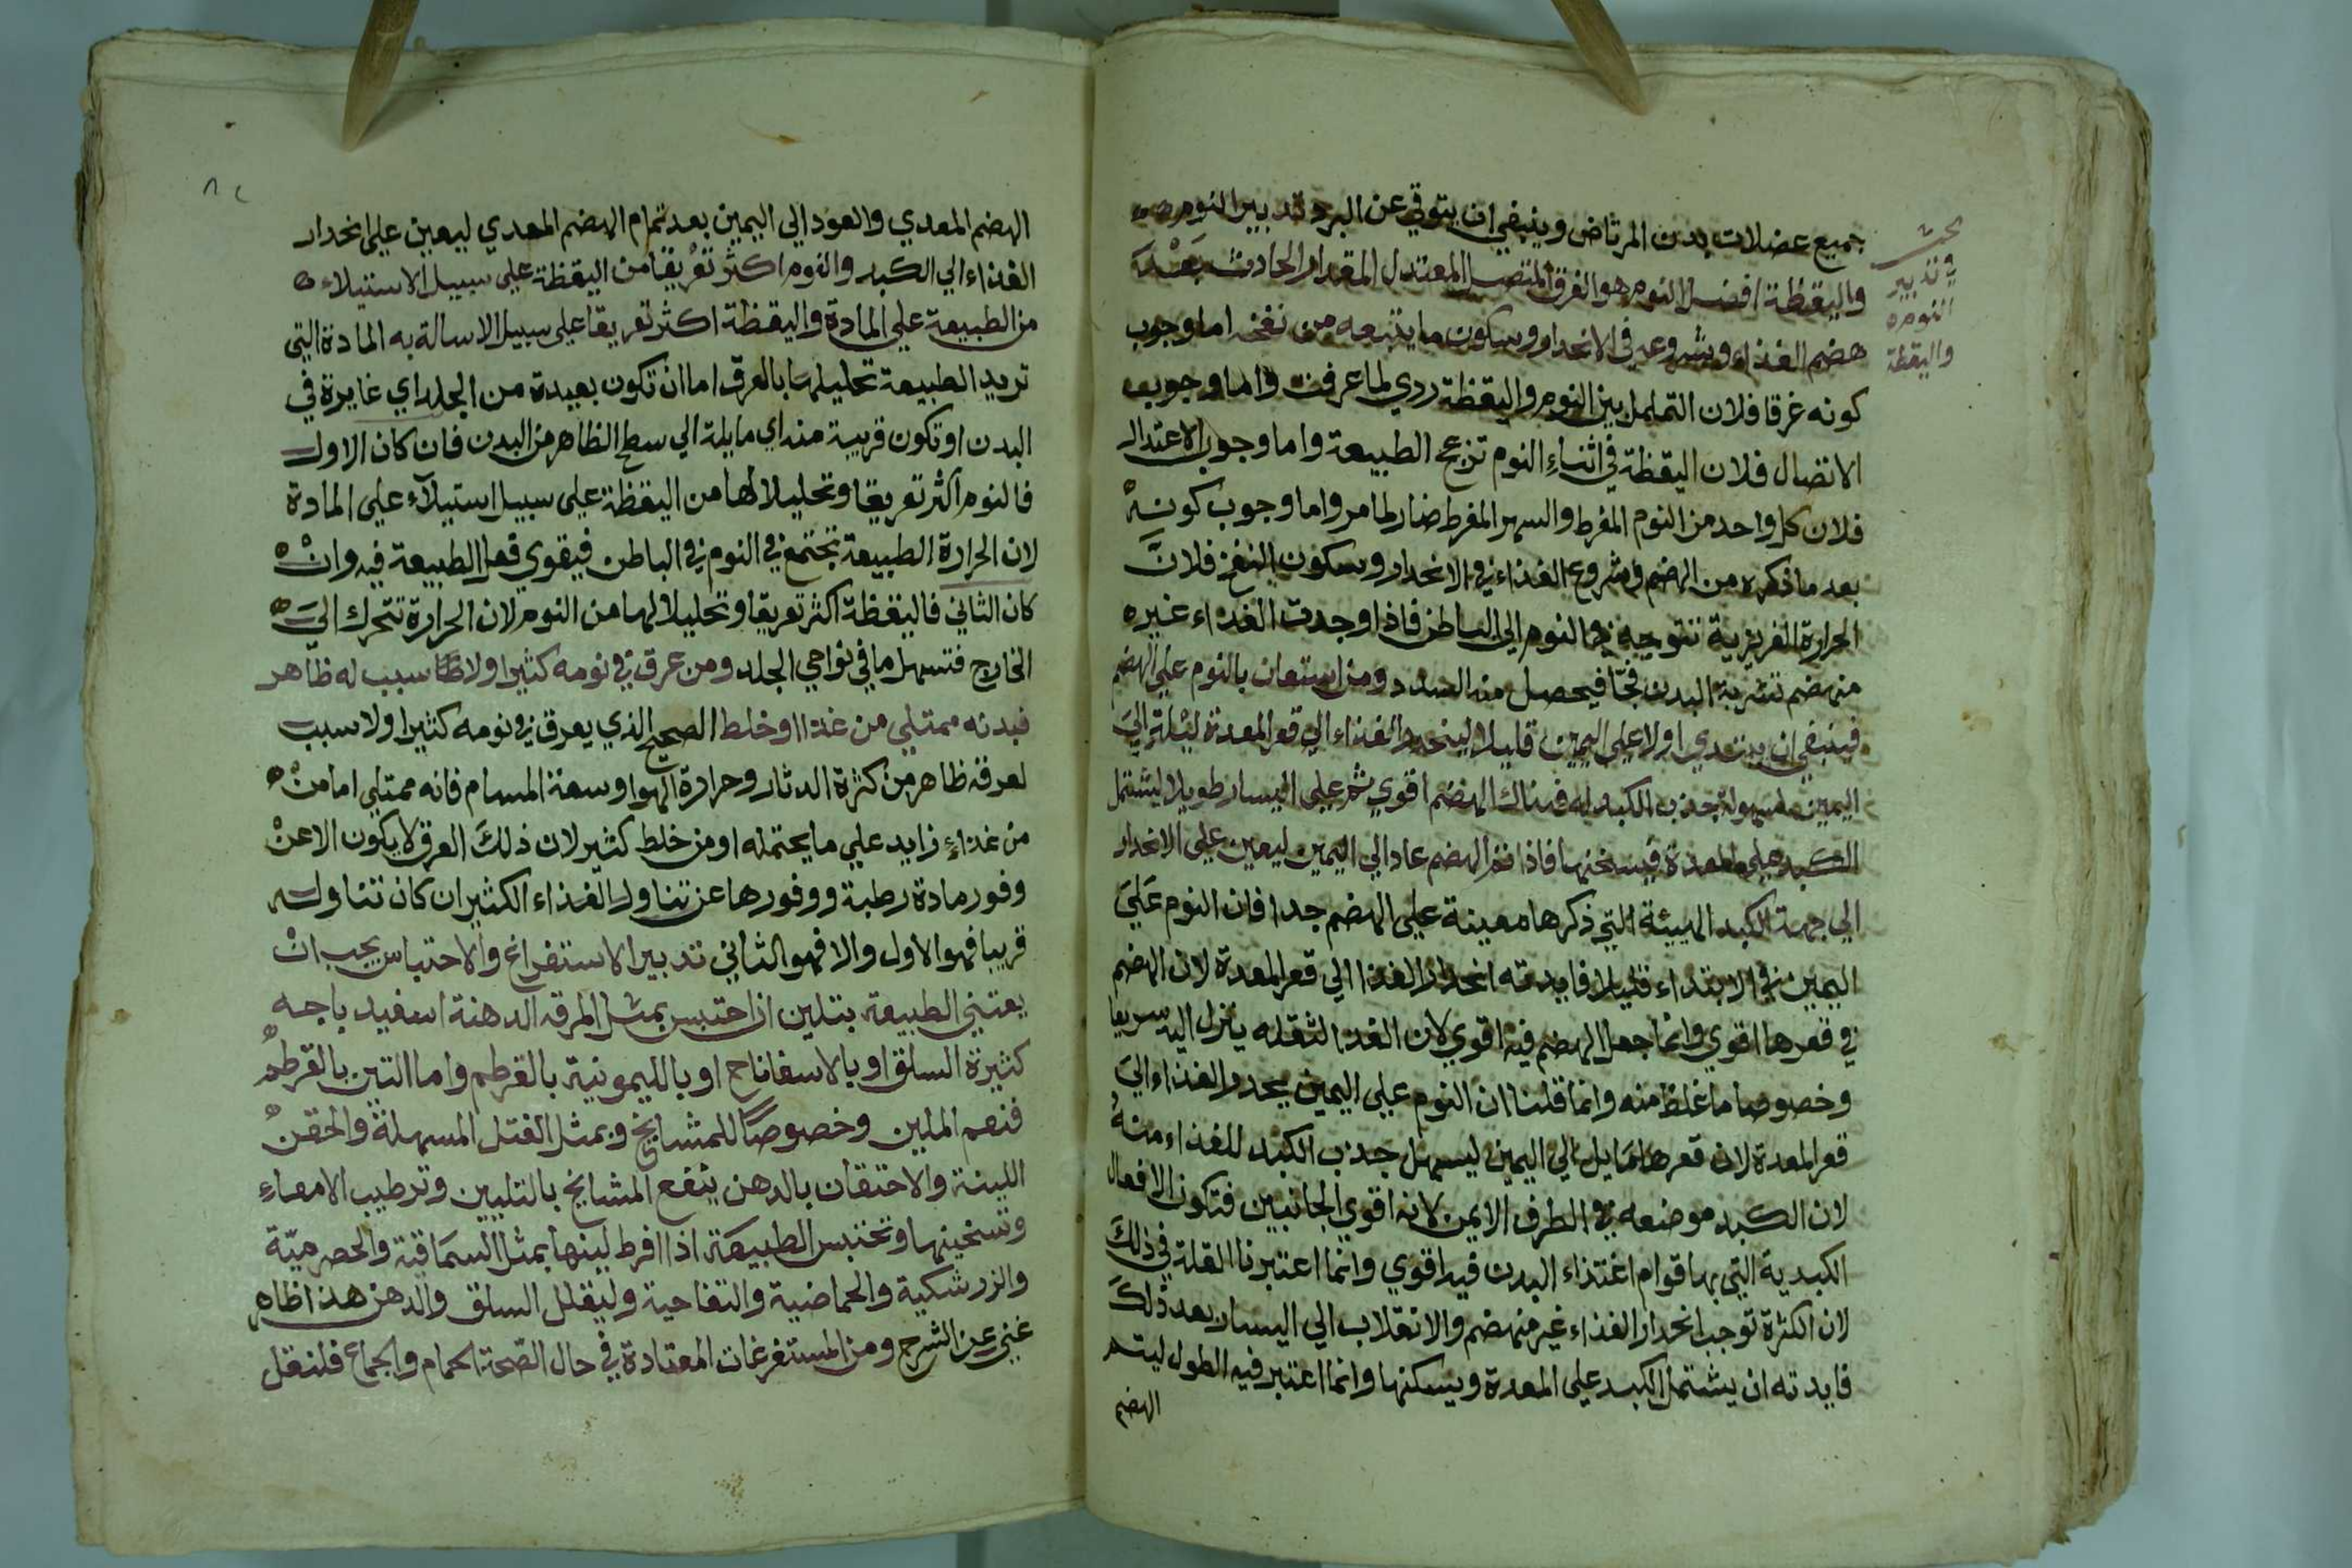 جميع عضلات بدن المرتاض وينبغي ان يتوقي عن البرد تدبير النوم
واليقظة افضل النوم هو الغرق المتصل المعتدل المقدار الحادث بعد
هضم الغذاء وشروعه في الانحدار وسكون ما يتبعه من نفخ اما وجوب
كونه غرقا فلان التململ بين النوم واليقظة ردي لما عرفت واما وجوب
الاتصال فلان اليقظة في اثناء النوم تزعج الطبيعة واما وجوب الاعتدال
فلان كل واحد من النوم المفرط والسهر المفرط ضار لما مر واما وجوب كونه
بعد ما ذكره من الهضم وشروع الغذاء في الانحدار وسكون النفخ فلان
الحرارة الغريزية تتوجه في النوم الى الباطن فاذا وجدت الغذاء غير
منهضم نشربه البدن فجا فيحصل منه السدد ومن استعان بالنوم علي الهضم
فينبغي ان يبتدي اولا علي اليمين قليلا لينحدر الغذاء الي قعر المعدة لميله الي
اليمين لسهولة جذب الكبد له فهناك الهضم اقوي ثم علي اليسار طويلا ليشتمل
الكبد علي المعدة فيسخنها فاذا تم الهضم عاد الي اليمين ليعين علي الانحدار
الي جهة الكبد الهيئة التي ذكرها معينة علي الهضم جدا فان النوم علي
اليمين في الابتداء قليلا فايدته انحدار الغذا الي قعر المعدة لان الهضم
في قعرها اقوي وانما جعل الهضم فيه اقوي لان الغذا لثقله ينزل اليه سريعا
وخصوصا ما غلظ منه وانما قلنا ان النوم علي اليمين يحدر الغذاء الي
قعر المعدة لان قعرها مايل الي اليمين ليسهل جذب الكبد للغذاء منه
لان الكبد موضعه في الطرف الايمن لانه اقوي الجانبين فتكون الافعال
الكبدية التي بها قوام اغتذاء البدن فيه اقوي وانما اعتبرنا القلة في ذلك
لان الكثرة توجب انحدار الغذاء غير منهضم والانقلاب الي اليسار بعد ذلك
فايدته ان يشتمل الكبد علي المعدة ويسكنها وانما اعتبر فيه الطول ليتم
الهضم
بحث
في تدبير
النوم
واليقظة
الهضم المعدي والعود الي اليمين بعد تمام الهضم المعدي ليعين علي انحدار
الغذاء الي الكبد والنوم اكثر تعريقا من اليقظة علي سبيل الاستيلاء
من الطبيعة علي المادة واليقظة اكثر تعريقا علي سبيل الاسالة به المادة التي
تريد الطبيعة تحليلها بالعرق اما ان تكون بعيدة من الجلد اي غايرة في
البدن او تكون قريبة منه اي مايلة الي سطح الظاهر من البدن فان كان الاول
فالنوم اكثر تعريقا وتحليلا لها من اليقظة علي سبيل استيلاء علي المادة
لان الحرارة الطبيعة تجتمع في النوم في الباطن فيقوي فعل الطبيعة فيه وان
كان الثاني فاليقظة اكثر تعريقا وتحليلا لها من النوم لان الحرارة تتحرك الي
الخارج فتسهل ما في نواحي الجلد ومن عرق في نومه كثيرا ولا سبب له ظاهر
فبدنه ممتلي من غذا او خلط الصحيح الذي يعرق في نومه كثيرا ولا سبب
لعرقه ظاهر من كثرة الدثار وحرارة الهوا وسعة المسام فانه ممتلي اما من
من غذاء زايد علي ما يحتمله او من خلط كثير لان ذلك العرق لا يكون الا عن
وفور مادة رطبة ووفورها عن تناول الغذاء الكثير ان كان تناوله
قريبا فهو الاول والا فهو الثاني تدبير الاستفراغ والاحتباس يجب ان
يعتني الطبيعة بتلين ان احتبس بمثل المرقه الدهنة اسفيد باجه
كثيرة السلق او بالاسفاناح او بالليمونية بالقرطم واما التين بالقرطم
فنعم الملين وخصوصا للمشايخ وبمثل الفتل المسهلة والحقن
اللينة والاحتقان بالدهن ينفع المشايخ بالتليين وترطيب الامعاء
وتسخينها وتحتبس الطبيعة اذا افرط لينها بمثل السماقية والحصرمية
والزرشكية والحماضية والتفاحية وليقلل السلق والدهن هذا ظاهر
غني عن الشرح ومن المستفرغات المعتادة في حال الصحة الحمام والجماع فلنقل